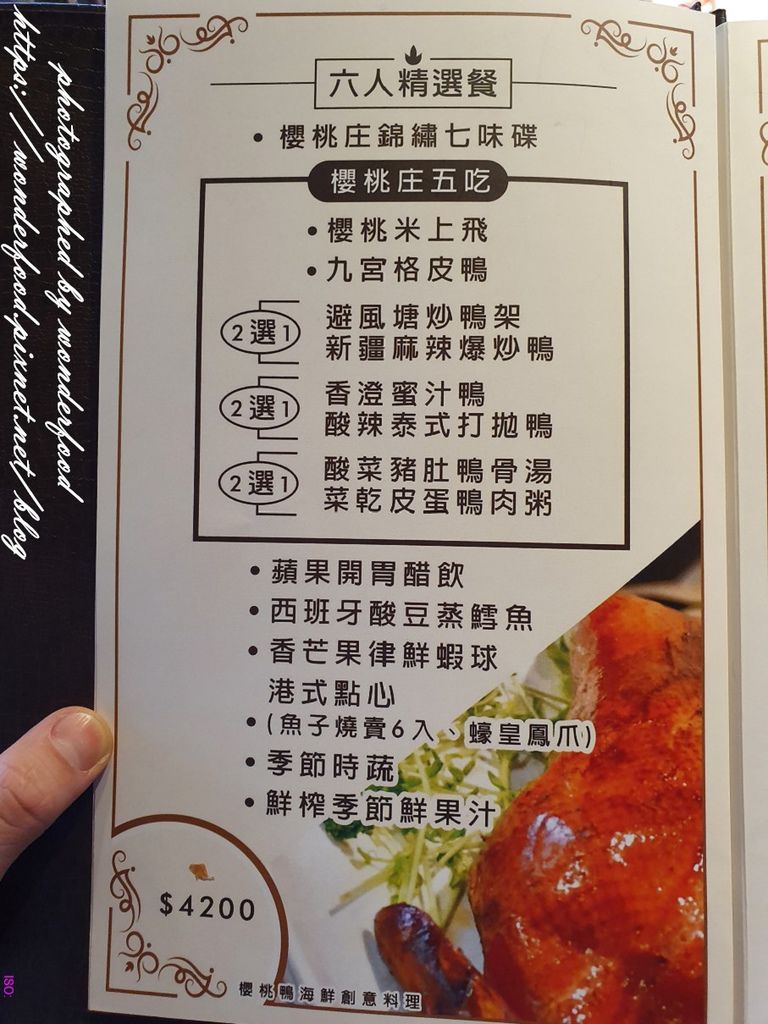 六人精選餐
• 櫻桃庄錦繡七味碟
櫻桃庄五吃
• 櫻桃米上飛
• 九宮格皮鴨
2選1
避風塘炒鴨架
新疆麻辣爆炒鴨
2選1
香澄蜜汁鴨
酸辣泰式打拋鴨
2選1
酸菜豬肚鴨骨湯
菜乾皮蛋鴨肉粥
• 蘋果開胃醋飲
• 西班牙酸豆蒸鱈魚
• 香芒果律鮮蝦球
港式點心
• (魚子燒賣6入、蠔皇鳳爪)
• 季節時蔬
• 鮮榨季節鮮果汁
$4200
櫻桃鴨海鮮創意料理
photographed by wonderfood
https://wonderfood.pixnet.net/blog
ISO: